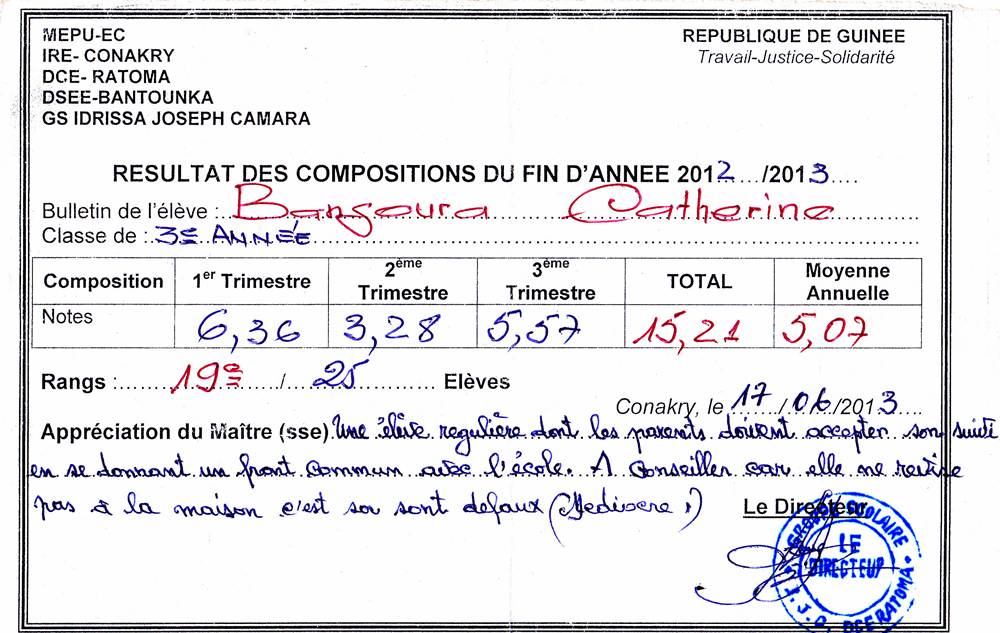 MEPU-EC
IRE- CONAKRY
DCE- RATOMA
DSEE-BANTOUNKA
GS IDRISSA JOSEPH CAMARA
REPUBLIQUE DE GUINEE
Travail-Justice-Solidarité
RESULTAT DES COMPOSITIONS DU FIN D'ANNEE 2012..../2013....
Bulletin de l'élève : Bangoura Catherine
Classe de : 3e ANNÉE
Composition 1er Trimestre 2ème Trimestre 3ème Trimestre TOTAL Moyenne Annuelle
Notes 6,36 3,28 5,57 15,21 5,07
Rangs : 19e / 25 Elèves
Conakry, le 17/06/2013
Appréciation du Maître (sse) Une élève regulière dont les parents doivent accepter son suivi
en se donnant un front commun avec l'école. A Conseiller car elle ne revise
pas à la maison c'est son sont defaux (Mediocre)
Le Directeur
GROUPE SCOLAIRE
LE
DIRECTEUR
I.J.C. DCE RATOMA